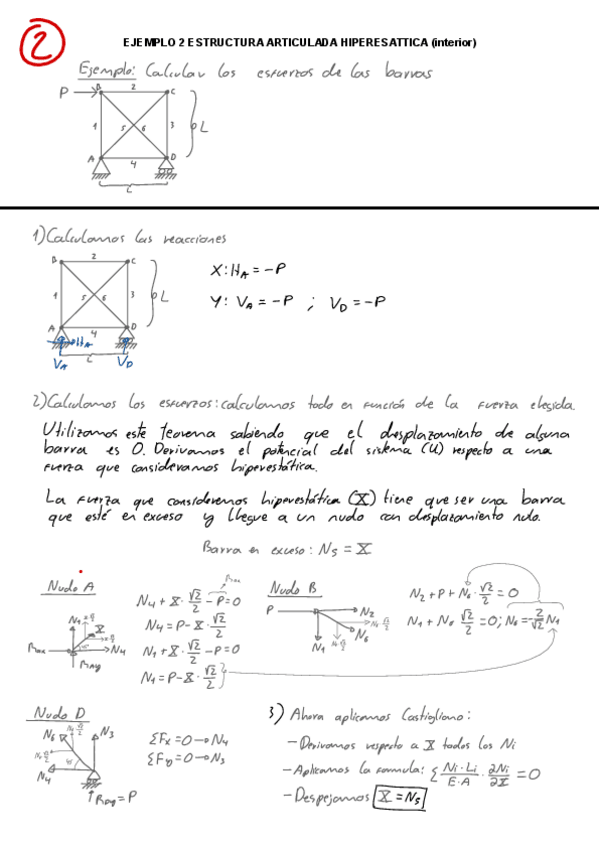 2
EJEMPLO 2 ESTRUCTURA ARTICULADA HIPERESATTICA (interior)
Ejemplo: Calcular los esfuerzos de las barras
P B 2 C
1 5 6 3 L
A 4 D
L
1) Calculamos las reacciones
B 2 C
1 5 6 3 L
A 4 D
HA
L
VA VD
X: HA = -P
Y: VA = -P ; VD = -P
2) Calculamos los esfuerzos: calculamos todo en función de la fuerza elegida.
Utilizamos este teorema sabiendo que el desplazamiento de alguna
barra es 0. Derivamos el potencial del sistema (U) respecto a una
fuerza que consideramos hiperestática.
La fuerza que consideremos hiperestática (X) tiene que ser una barra
que esté en exceso y llegue a un nudo con desplazamiento nulo.
Barra en exceso: N5 = X
Nudo A
N1 X
Rax N4
Ray
Rax
N4 + X · √2/2 - P = 0
N4 = P - X · √2/2
N1 + X · √2/2 - P = 0
N1 = P - X · √2/2
Nudo B
P N2
N1 N6
N2 + P + N6 · √2/2 = 0
N1 + N6 √2/2 = 0; N6 = -2/√2 N1
Nudo D
N6 N3
N4
Ray = P
ΣFx = 0 → N4
ΣFy = 0 → N3
3) Ahora aplicamos Castigliano:
- Derivamos respecto a X todos los Ni
- Aplicamos la formula: Σ Ni·Li/E·A · ∂Ni/∂X = 0
- Despejamos X = N5